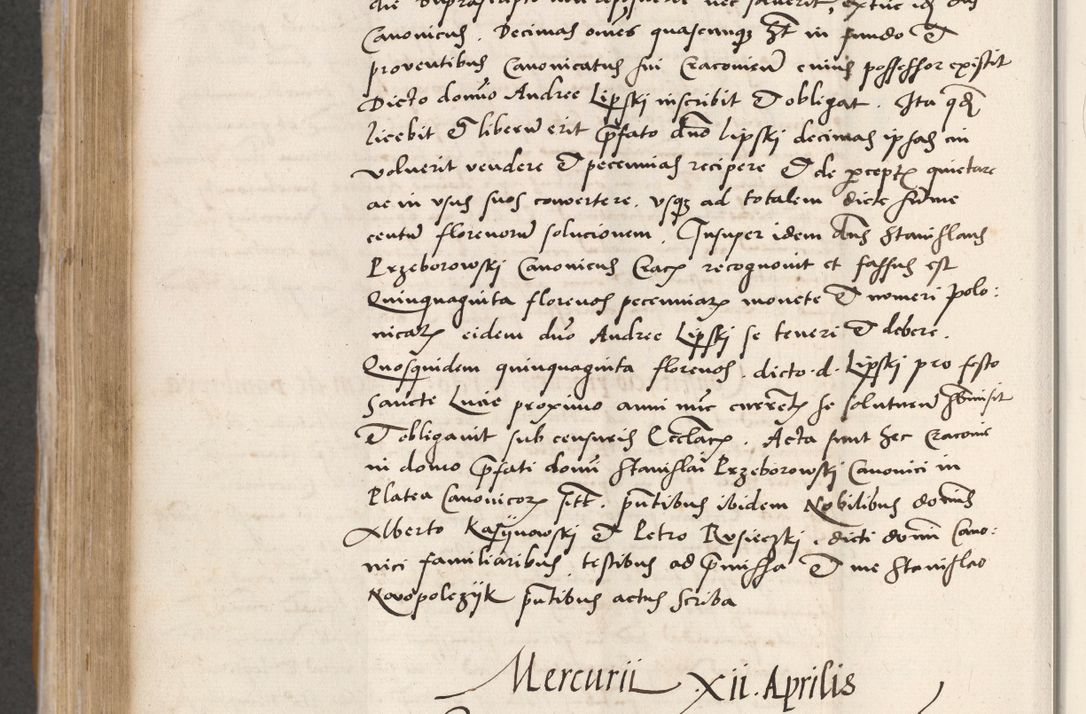 die suprascripto non reposuerit nec soluerit, extunc idem dns
Canonicus. Decimas oms quascunqz hт in fundo et
proventibus Canonicatus sui Cracovien cuius possessor existit
Dicto domo Andree Lipski inscribit et obligat. Ita qd
licebit et liberu erit pfato dno Lipski decimas ipsas cui
voluerit vendere et pecunias recipere et de pcept quietare
ac in usus suos convertere, usqz ad totalem dicte sume
centu florenoru solucionem. Insuper idem Dns Stanislaus
Przeborowskj Canonicus Crac recognovit et fassus est
Quinquaginta florenos pecuniar monete et numeri Polo:
nical eidem dno Andree Lipskj se teneri et debere.
Quosquidem quinquaginta florenos, dicto d. Lipskj pro festo
Sancte Lucie proximo anni nuc current se soluturu submisit
et obligavit sub censuris Ecclac. Acta sunt hec Cracovie
in domo pfati domi Stanislai Przeborowskj Canonici in
Platea Canonicor sitt. pntibus ibidem Nobilibus domis
Alberto Kasijnowskj et Petro Rusieczkj, dicti domi Cano:
nici familiaribus, testibus ad pmissa et me Stanislao
Novopolczijk pntibus actus scriba
Mercurii XII. Aprilis